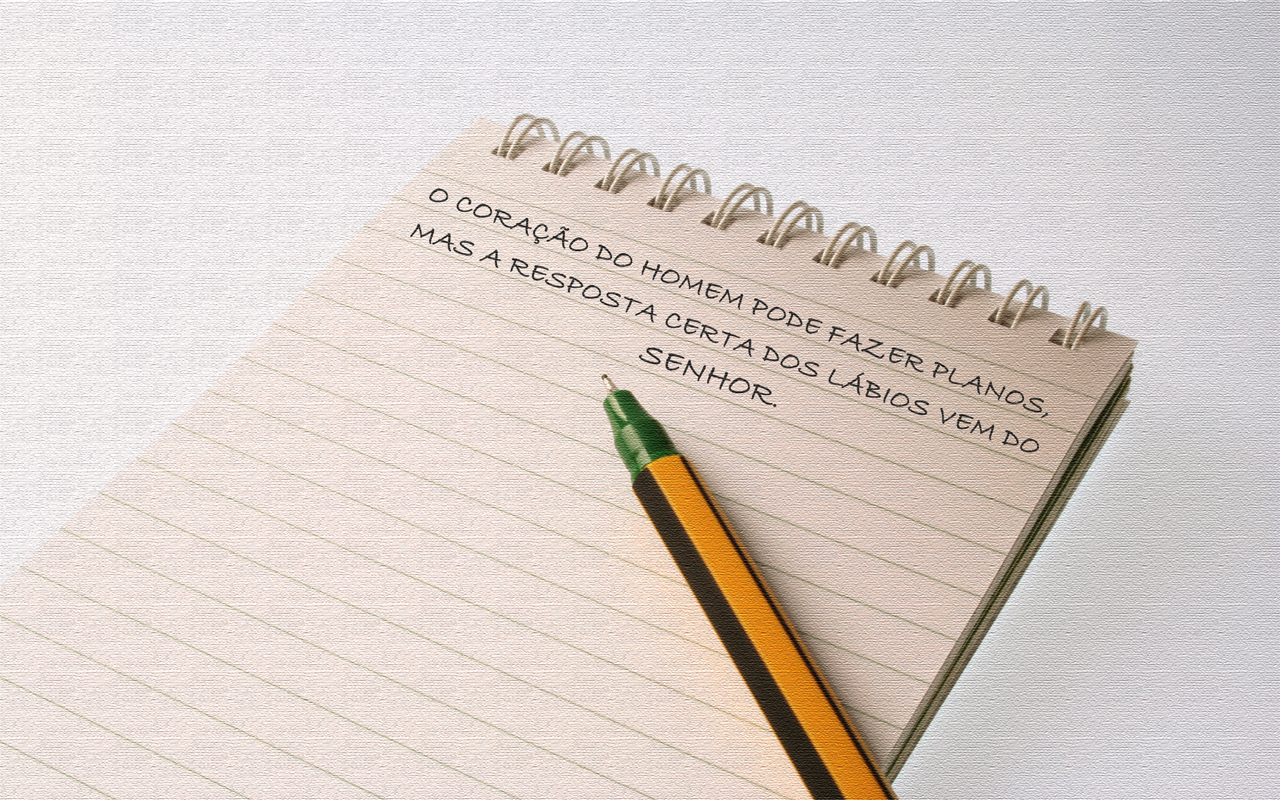 O CORAÇÃO DO HOMEM PODE FAZER PLANOS,
MAS A RESPOSTA CERTA DOS LÁBIOS VEM DO
SENHOR.